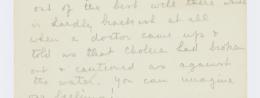 out of the best well there
is hardly brackish at all
when a doctor came up &
told us that cholera had broken
out & cautioned us against
the water. You can imagine
our feelings!